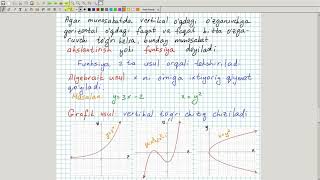 Agar munosabatda vertikal o'qdagi o'zgaruvchiga
gorizontal o'qdagi faqat va faqat bitta o'zga-
ruvchi to'g'ri kelsa, bunday munosabat
akslantirish yoki funksiya deyiladi.
Funksiya 2 ta usul orqali tekshiriladi
Algebraik usul x ni o'rniga ixtiyoriy qiymat
qo'yiladi.
Masalan y=3x-2 x=y²
Grafik usul vertikal to'g'ri chiziq chiziladi
y
x
y
x
y
x=y²
x